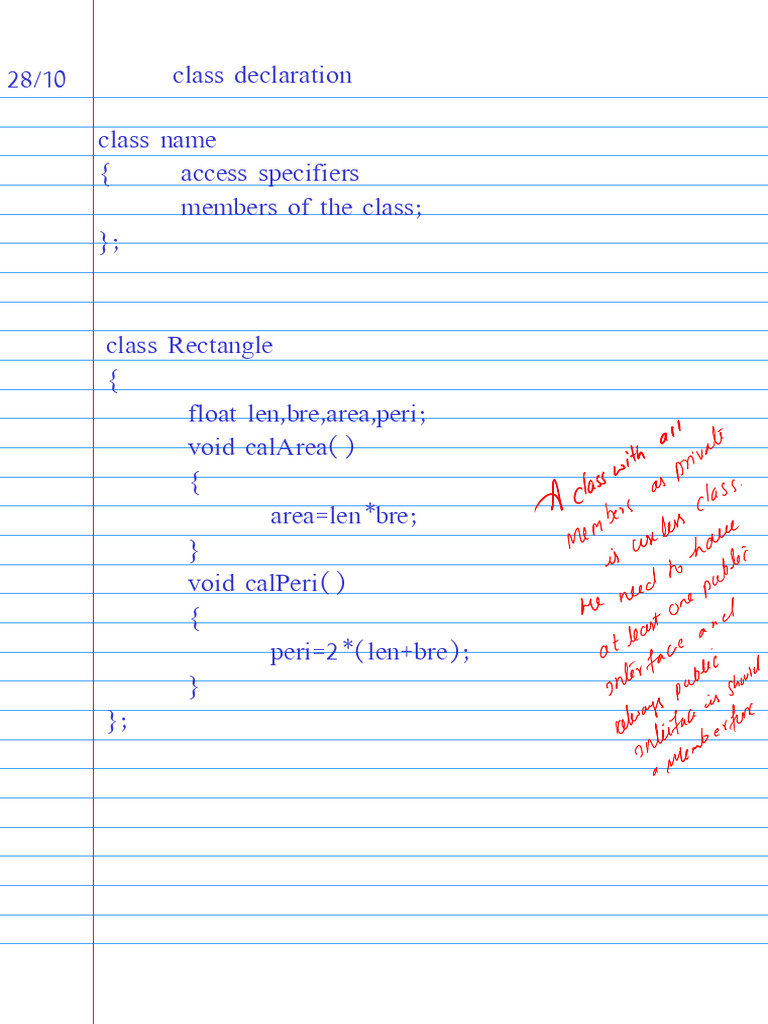 28/10 class declaration
class name
{ access specifiers
members of the class;
};
class Rectangle
{
float len,bre,area,peri;
void calArea()
{
area=len*bre;
}
void calPeri()
{
peri=2*(len+bre);
}
};
A class with all
members as private
is useless class.
we need to have
at least one public
interface and
always public
interface is should
a member